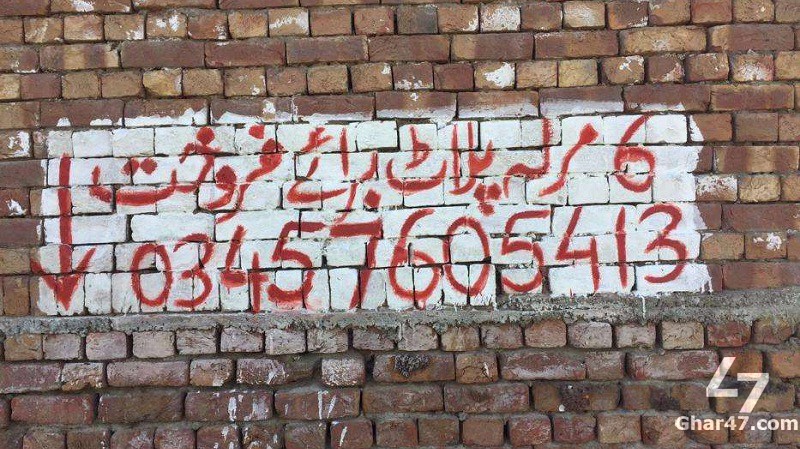 6 مرلہ پلاٹ برائے فروخت
03457605413
47
Ghar47.com